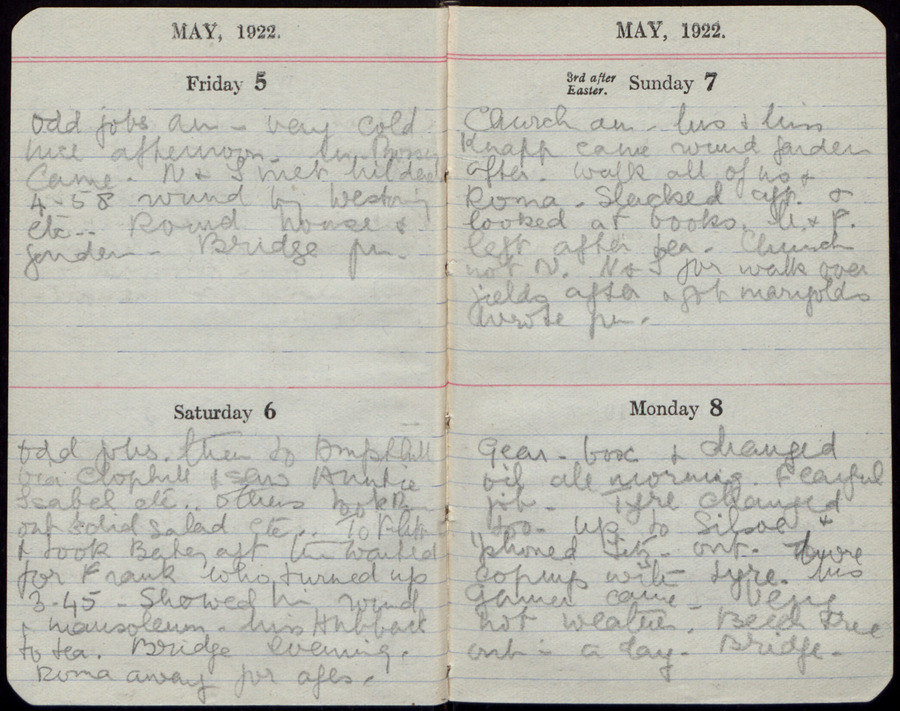 MAY, 1922.
Friday 5
Odd jobs am - very cold
nice afternoon.
Came. N & I met
4-58 round by Westning
etc.. Round house &
garden - Bridge pm.
Saturday 6
Odd jobs. then to Ampthill
via Clophill & saw Auntie
Isabel etc.. others
out salad etc.. To Flitt
& took Baker aft waited
for Frank who turned up
3-45 - Showed him round
& mausoleum. Miss Hubback
to tea. Bridge evening.
Roma away for ages.
MAY, 1922.
3rd after Easter. Sunday 7
Church am - Mrs & Miss
Knapp came round garden
after. Walk all of us &
Roma - Slacked aft. &
looked at books. & F.
left after tea. Church
not N. N & I for walk over
fields after & got marigolds
Wrote pm.
Monday 8
Gear-box & changed
oil all morning. Fearful
job. Tyre changed
too - up to Silsoe &
'phoned - out. More
with tyre. Miss
came - Very
hot weather. Beech tree
out in a day. Bridge.